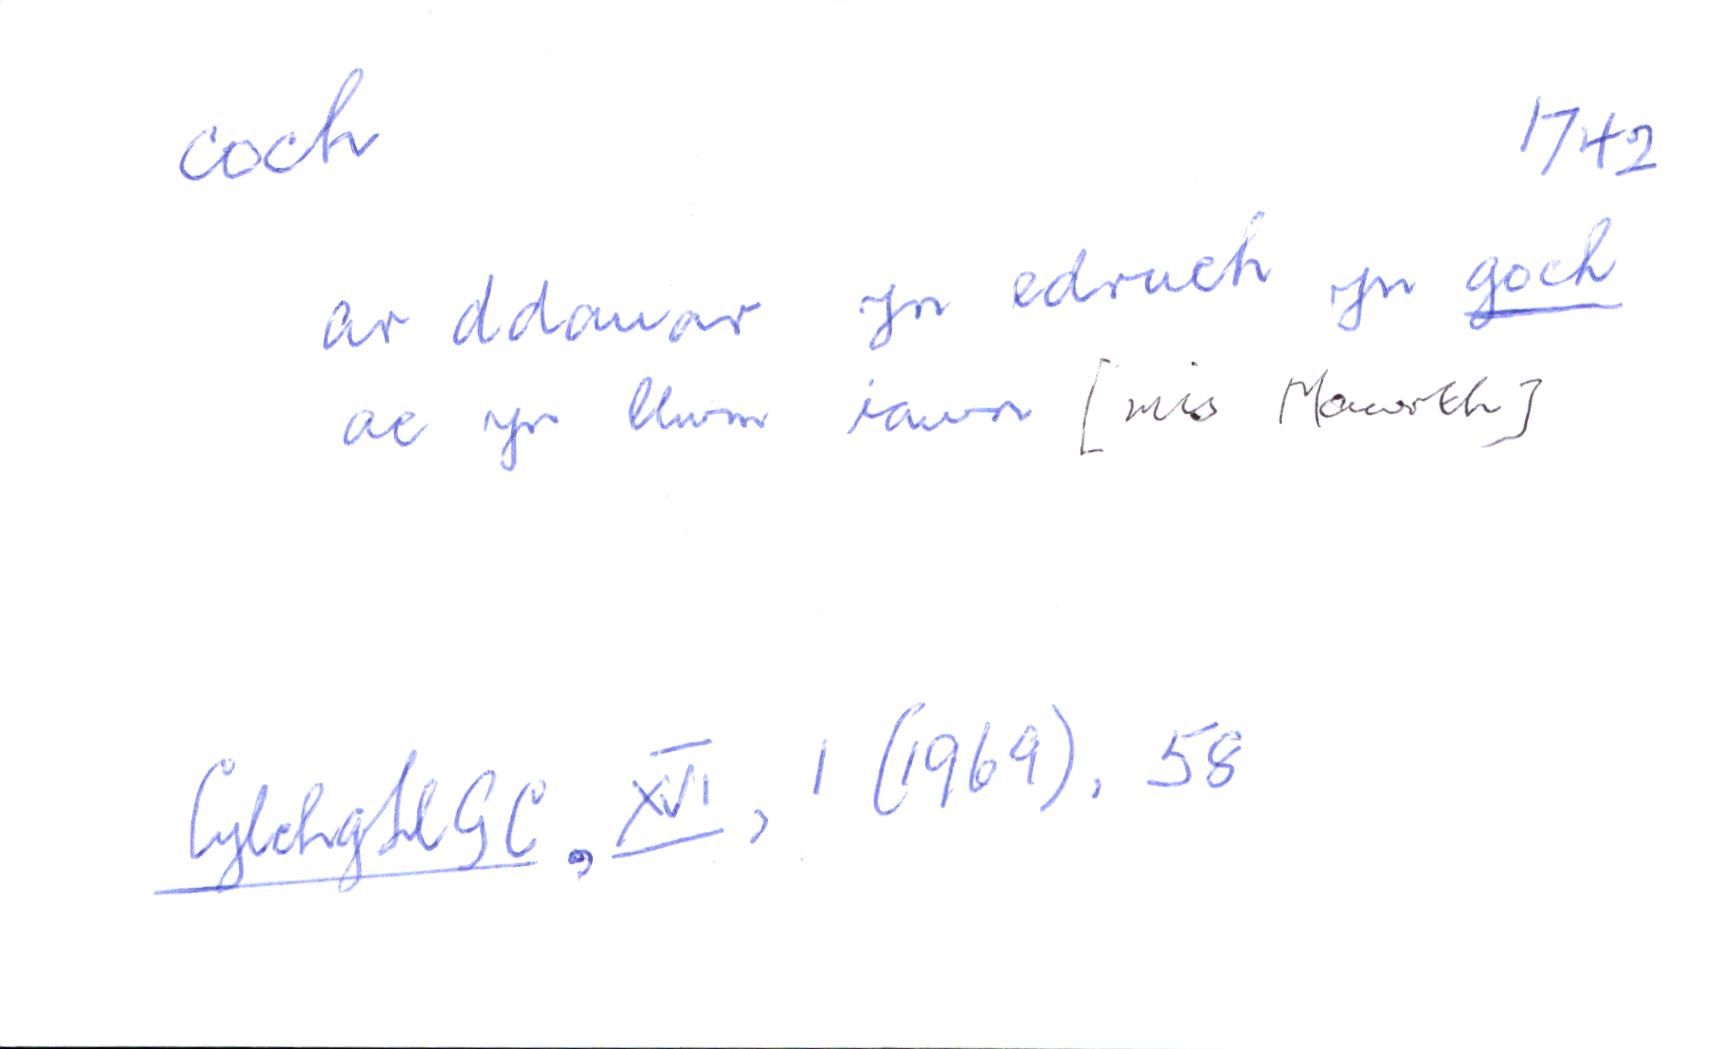 coch 1742
ar ddauar yn edruch yn goch
ac yn llwm iawn [mis Mawrth]
CylchgLlGC, XVI, 1 (1969), 58